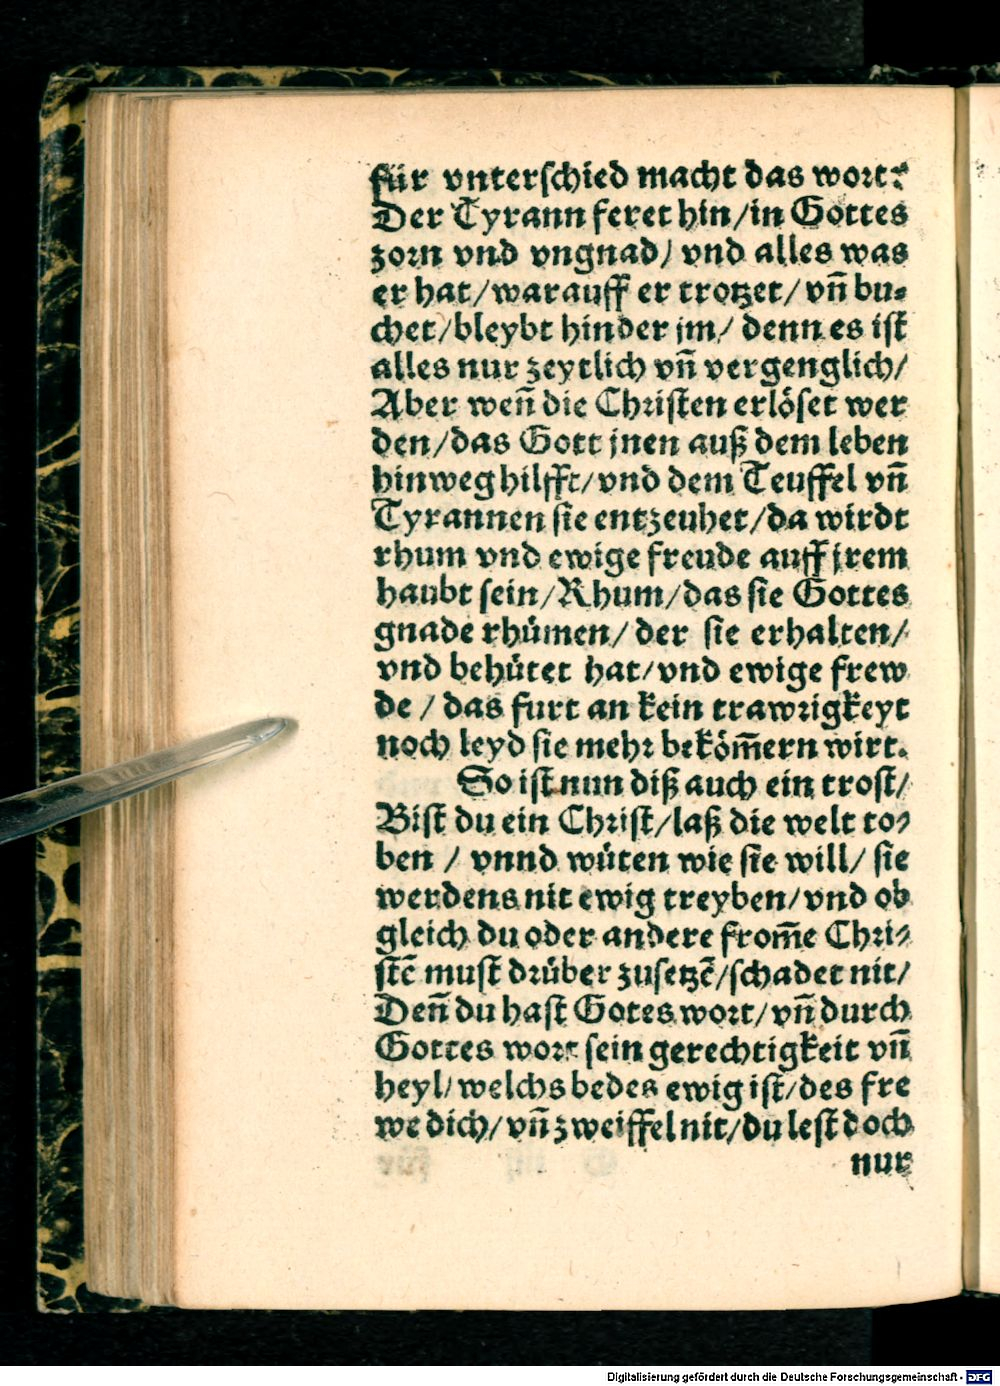 für vnterschied macht das wort?
Der Tyrann feret hin/in Gottes
zorn vnd vngnad/ vnd alles was
er hat/warauff er trotzet/ vn̄ bu⸗
chet/bleybt hinder jm/ denn es ist
alles nur zeytlich vn̄ vergenglich/
Aber wen̄ die Christen erlöset wer
den/das Gott jnen auß dem leben
hinweg hilfft/vnd dem Teuffel vn̄
Tyrannen sie entzeuhet/da wirdt
rhum vnd ewige freude auff jrem
haubt sein/Rhum/das sie Gottes
gnade rhümen/ der sie erhalten/
vnd behütet hat/vnd ewige frew
de / das furt an kein trawrigkeyt
noch leyd sie mehr beköm̄ern wirt.
So ist nun diß auch ein trost/
Bist du ein Christ/laß die welt to⸗
ben / vnnd wüten wie sie will/ sie
werdens nit ewig treyben/vnd ob
gleich du oder andere from̄e Chri⸗
stē must drüber zusetzē/schadet nit/
Den̄ du hast Gotes wort/vn̄ durch
Gottes wort sein gerechtigkeit vn̄
heyl/welchs bedes ewig ist/des fre
we dich/vn̄ zweiffel nit/du lest doch
nur
Digitalisierung gefördert durch die Deutsche Forschungsgemeinschaft - DFG